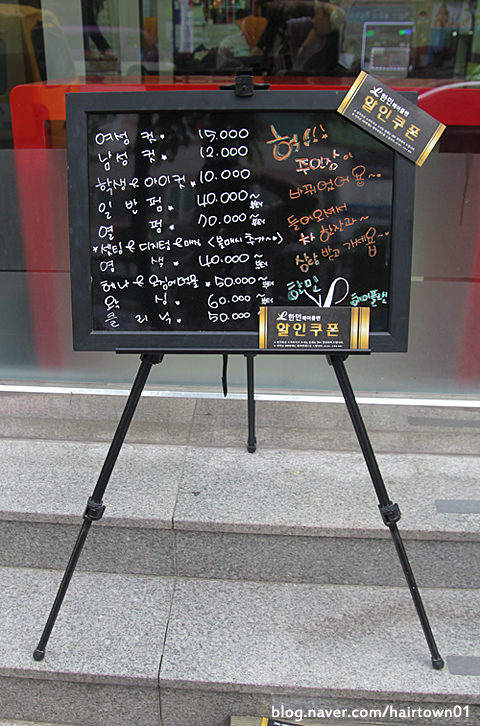 여성 컷. 15.000
남성 컷. 12.000
학생&아이컷. 10.000
일반펌. 40.000~부터
열펌. 70.000~부터
*셋팅&디지털&매직 <볼매시 추가~>
염색. 40.000~부터
헤나&오징어먹물. 50.000~부터
왁싱. 60.000~부터
클리닉. 50.000
헉!!!
주인장이
바뀌었어용~
들어오셔서
차 한잔과~
상담 받고 가세욤~
한민
헤어플랜
한민헤어플랜
할인쿠폰
한민헤어플랜
할인쿠폰
blog.naver.com/hairtown01